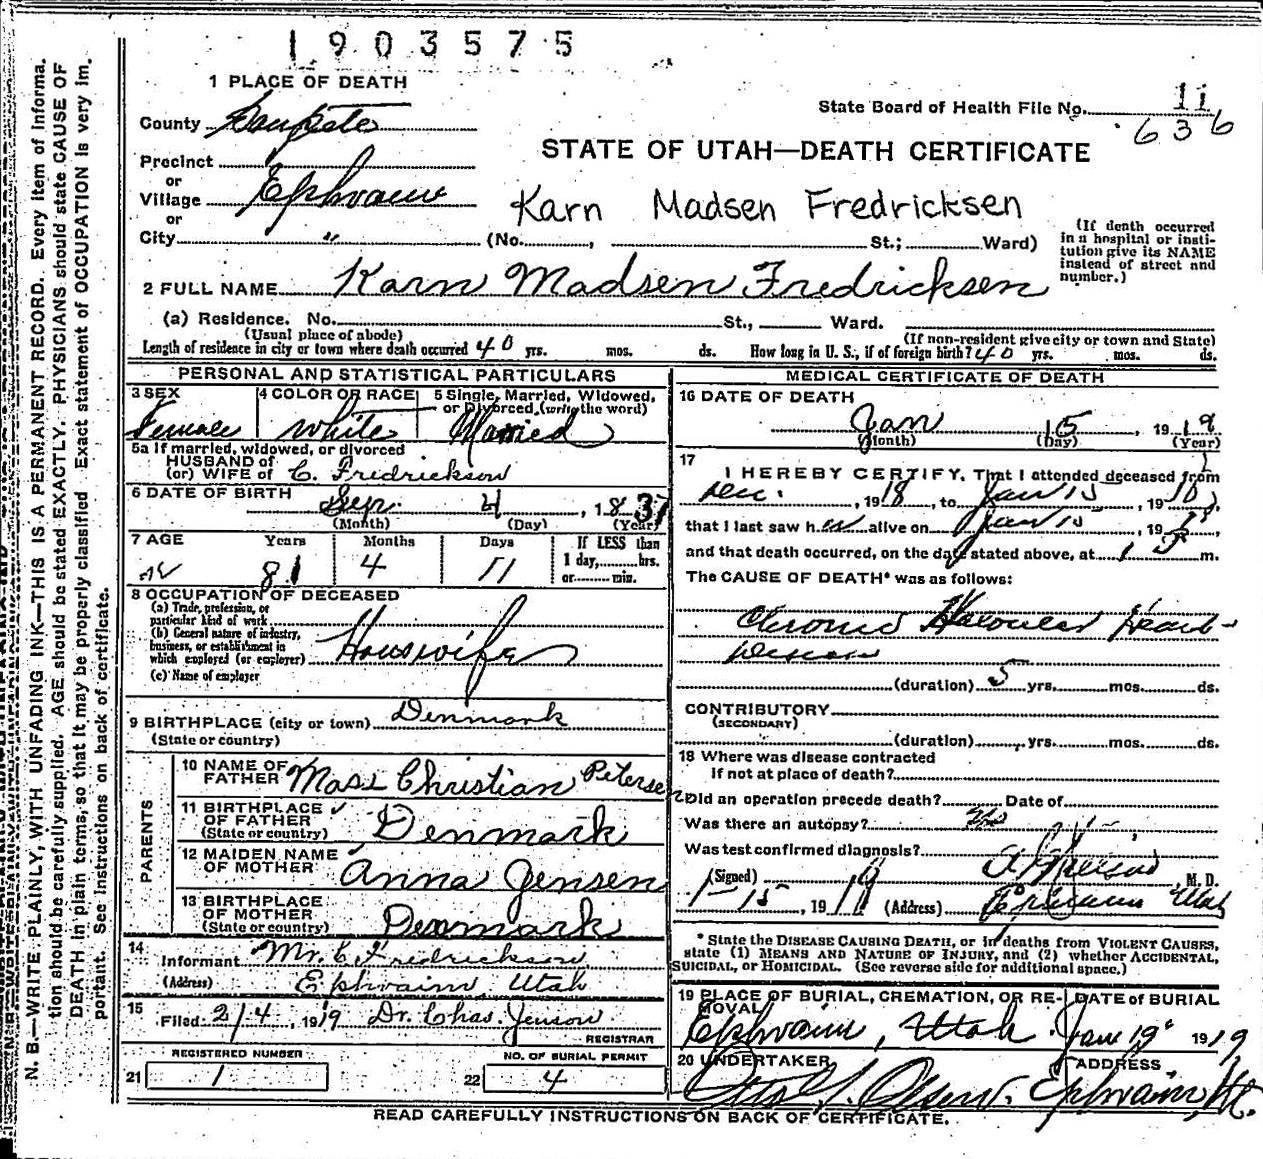 1903575
1 PLACE OF DEATH
State Board of Health File No. 11
636
County Sanpete
STATE OF UTAH—DEATH CERTIFICATE
Precinct
or
Village Ephraim
Karn Madsen Fredricksen
or
City " (No. , St.; Ward)
(If death occurred in a hospital or insti-
tution give its NAME
instead of street and
number.)
2 FULL NAME Karn Madsen Fredricksen
(a) Residence. No. St., Ward.
(Usual place of abode) (If non-resident give city or town and State)
Length of residence in city or town where death occurred 40 yrs. mos. ds. How long in U. S., if of foreign birth? 40 yrs. mos. ds.
PERSONAL AND STATISTICAL PARTICULARS
3 SEX 4 COLOR OR RACE 5 Single, Married, Widowed,
or Divorced (write the word)
Female White Married
5a If married, widowed, or divorced
HUSBAND of
(or) WIFE of C. Fredrickson
6 DATE OF BIRTH
Sep. 4, 1837
(Month) (Day) (Year)
7 AGE Years Months Days If LESS than
1 day, hrs.
or min.
81 4 11
8 OCCUPATION OF DECEASED
(a) Trade, profession, or
particular kind of work
(b) General nature of industry,
business, or establishment in
which employed (or employer) Housewife
(c) Name of employer
9 BIRTHPLACE (city or town) Denmark
(State or country)
PARENTS
10 NAME OF
FATHER Mass Christian Petersen
11 BIRTHPLACE
OF FATHER
(State or country) Denmark
12 MAIDEN NAME
OF MOTHER Anna Jensen
13 BIRTHPLACE
OF MOTHER
(State or country) Denmark
14
Informant Mr. C. Fredrickson
(Address) Ephraim, Utah
15
Filed 2/4, 1919 Dr. Chas. Jenson
REGISTRAR
REGISTERED NUMBER NO. OF BURIAL PERMIT
21 1 22 4
MEDICAL CERTIFICATE OF DEATH
16 DATE OF DEATH
Jan 15, 1919
(Month) (Day) (Year)
17
I HEREBY CERTIFY, That I attended deceased from
Dec. , 1918, to Jan 15, 19
that I last saw her alive on Jan 15, 19
and that death occurred, on the date stated above, at m.
The CAUSE OF DEATH* was as follows:
Chronic Valvular Heart
Disease
(duration) 5 yrs. mos. ds.
CONTRIBUTORY
(SECONDARY)
(duration) yrs. mos. ds.
18 Where was disease contracted
If not at place of death?
Did an operation precede death? Date of
Was there an autopsy? No
Was test confirmed diagnosis?
(Signed) M. D.
1-15, 1919 (Address) Ephraim Utah
* State the DISEASE CAUSING DEATH, or in deaths from VIOLENT CAUSES,
state (1) MEANS AND NATURE OF INJURY, and (2) whether ACCIDENTAL,
SUICIDAL, or HOMICIDAL. (See reverse side for additional space.)
19 PLACE OF BURIAL, CREMATION, OR RE-
MOVAL DATE of BURIAL
Ephraim, Utah Jan 19 1919
20 UNDERTAKER ADDRESS
Olsen Ephraim, Ut.
READ CAREFULLY INSTRUCTIONS ON BACK OF CERTIFICATE.
N. B.—WRITE PLAINLY, WITH UNFADING INK—THIS IS A PERMANENT RECORD. Every item of informa-
tion should be carefully supplied. AGE should be stated EXACTLY. PHYSICIANS should state CAUSE OF
DEATH in plain terms, so that it may be properly classified. Exact statement of OCCUPATION is very im-
portant. See instructions on back of certificate.